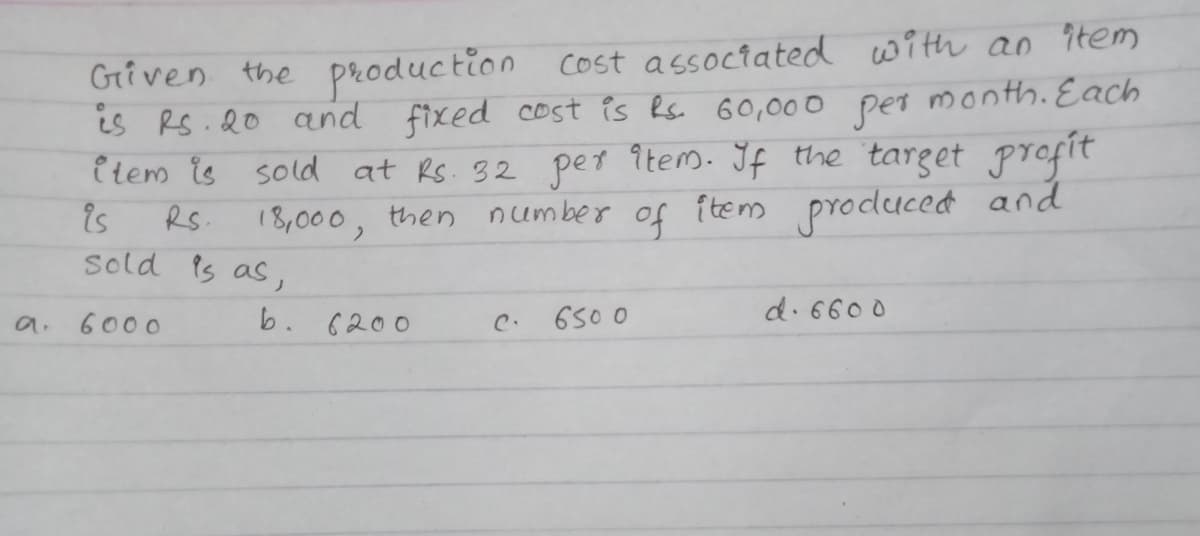 Given the production cost associated with an item
is Rs. 20 and fixed cost is Rs. 60,000 per month. Each
item is sold at Rs. 32 per item. If the target profit
is Rs. 18,000, then number of item produced and
sold is as,
a. 6000 b. 6200 c. 6500 d. 6600